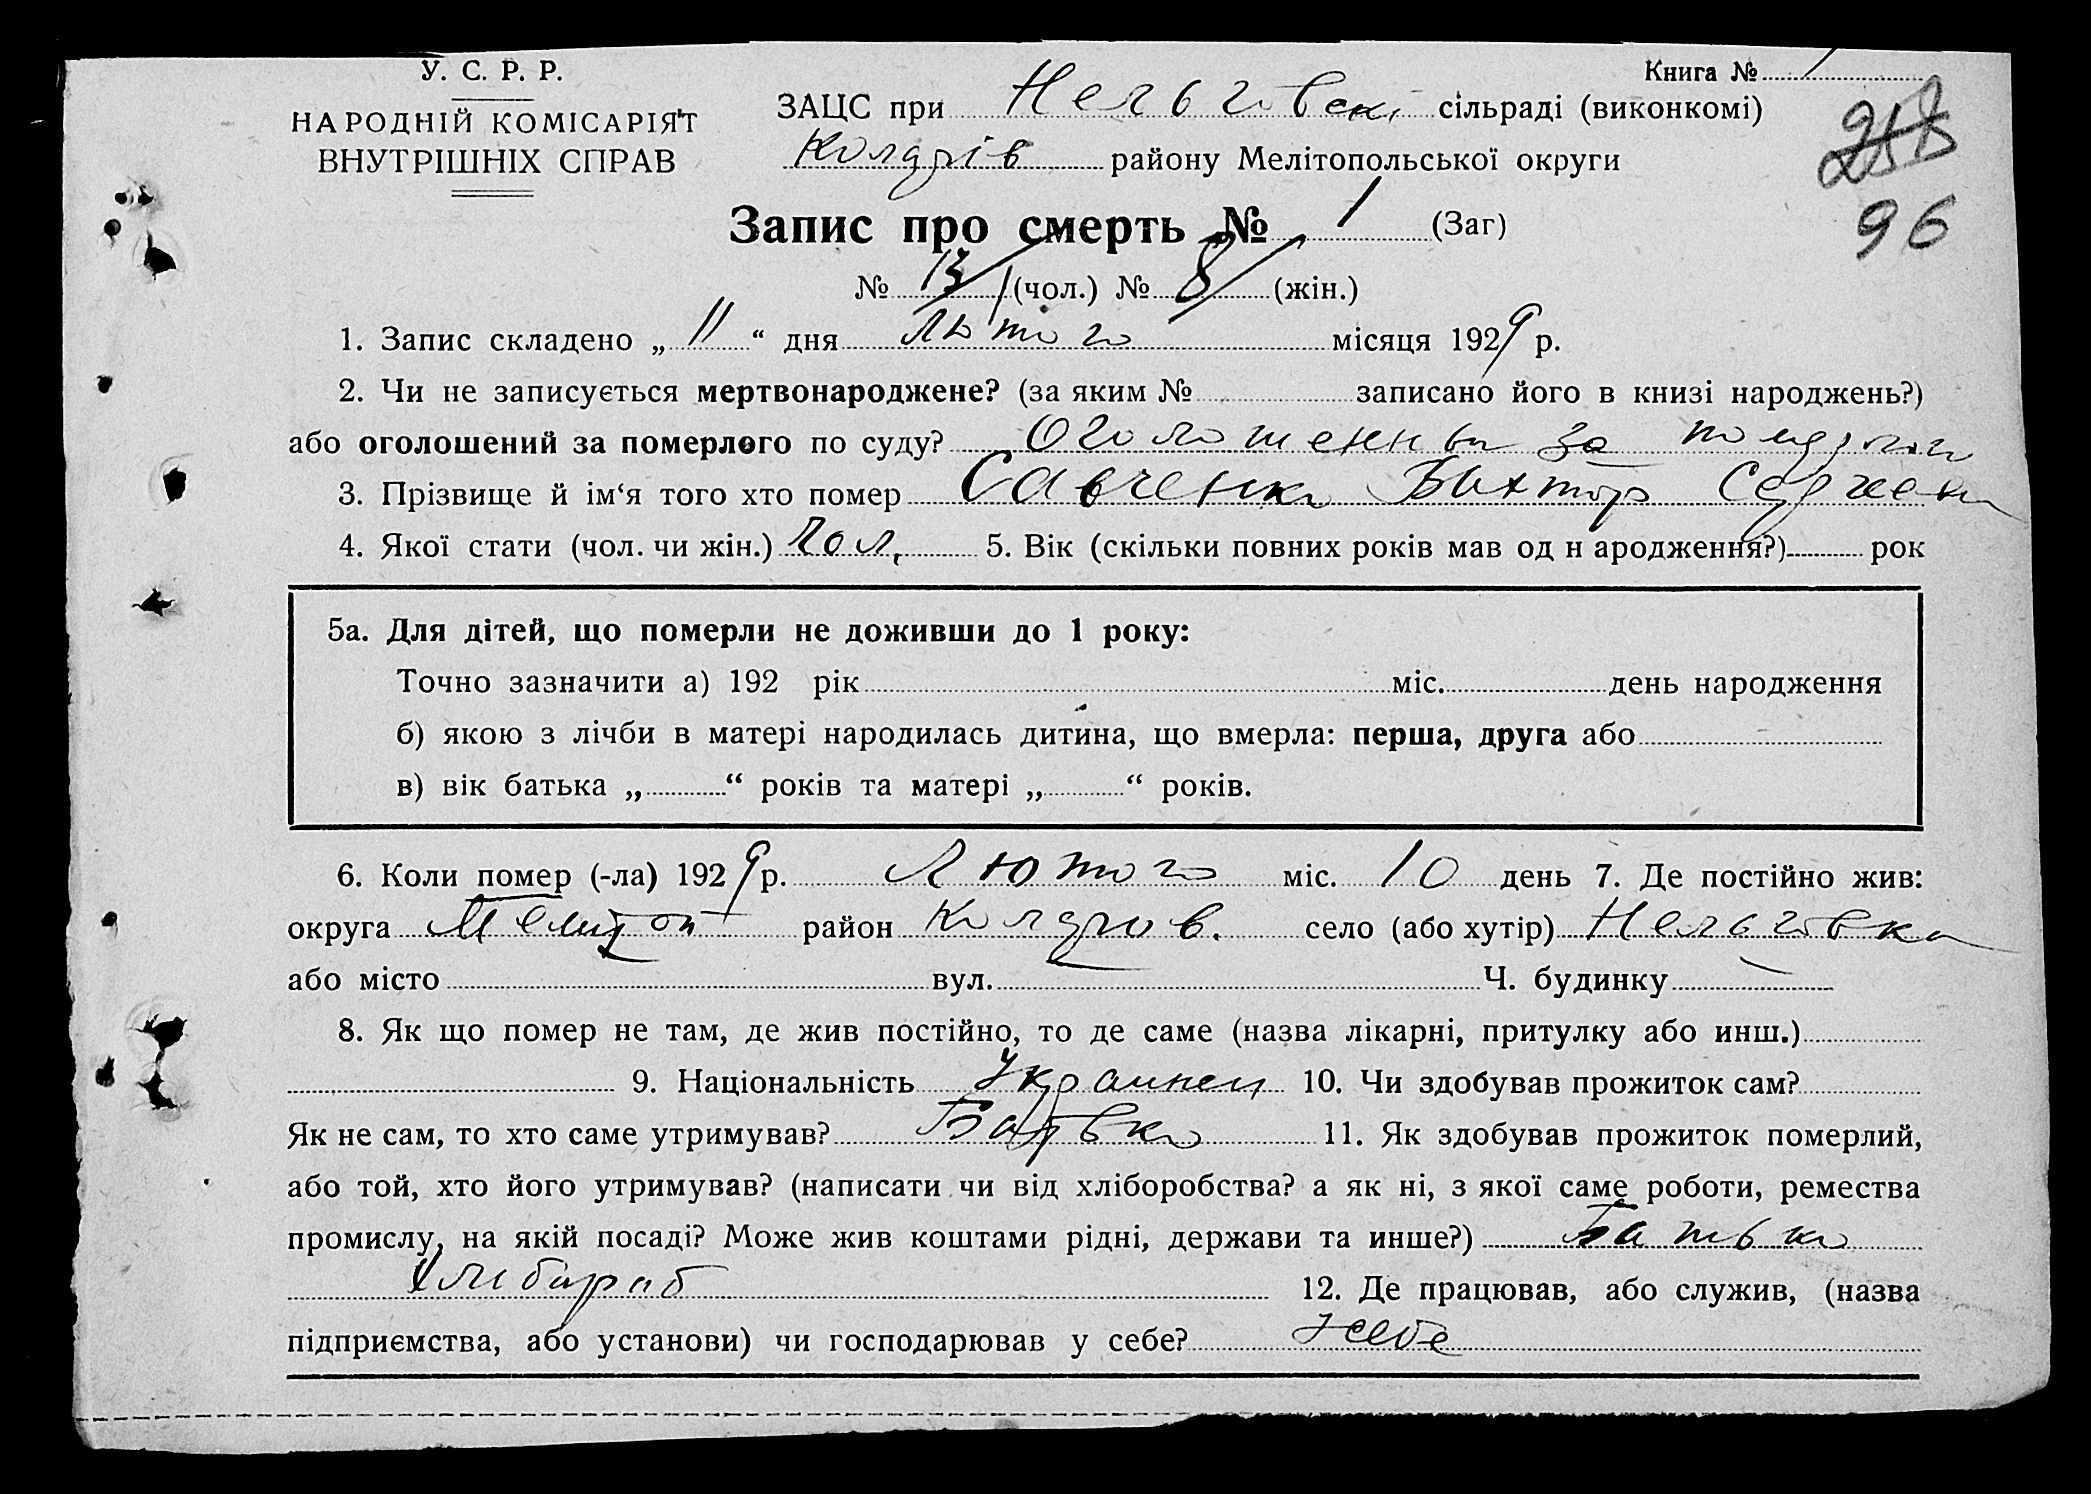 У. С. Р. Р.
НАРОДНІЙ КОМІСАРІЯТ
ВНУТРІШНІХ СПРАВ
Книга № 1
ЗАЦС при Нельговскі сільраді (виконкомі)
Колдрів району Мелітопольської округи
96
Запис про смерть № 1 (Заг)
№ 13/1 (чол.) № 8/ (жін.)
1. Запис складено „ 11 “ дня Лютого місяця 1929 р.
2. Чи не записується мертвонароджене? (за яким № записано його в книзі народжень?)
або оголошений за померлого по суду? Оголошенны за
3. Прізвище й ім‘я того хто помер Савченко Вихтор
4. Якої стати (чол. чи жін.) Чол. 5. Вік (скільки повних років мав од н ародження?) рок
5а. Для дітей, що померли не доживши до 1 року:
Точно зазначити а) 192 рік міс. день народження
б) якою з лічби в матері народилась дитина, що вмерла: перша, друга або
в) вік батька „ “ років та матері „ “ років.
6. Коли помер (-ла) 1929 р. Лютого міс. 10 день 7. Де постійно жив:
округа Мелитоп район Колдров. село (або хутір) Нельговка
або місто вул. Ч. будинку
8. Як що помер не там, де жив постійно, то де саме (назва лікарні, притулку або инш.)
9. Національність Украинец 10. Чи здобував прожиток сам?
Як не сам, то хто саме утримував? Батько 11. Як здобував прожиток померлий,
або той, хто його утримував? (написати чи від хліборобства? а як ні, з якої саме роботи, ремества
промислу, на якій посаді? Може жив коштами рідні, держави та инше?) Батько
Хлибараб 12. Де працював, або служив, (назва
підприємства, або установи) чи господарював у себе?